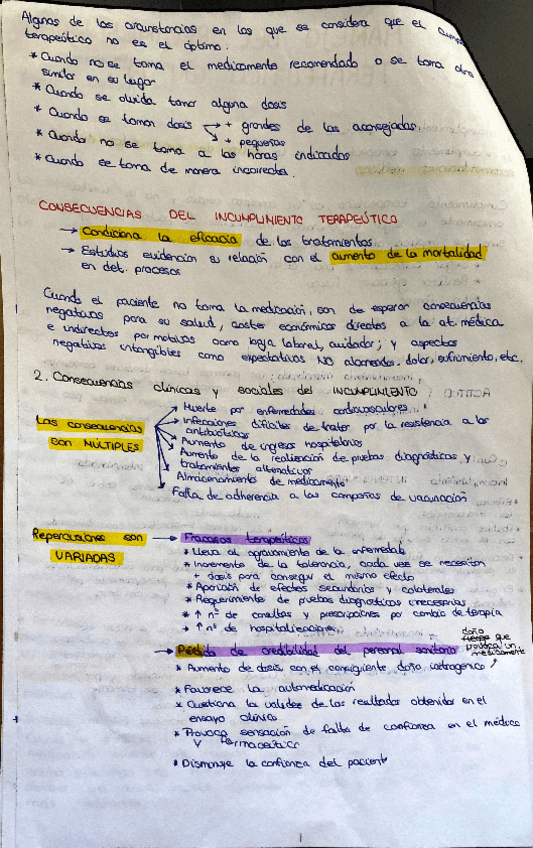 Algunas de las circunstancias en las que se considera que el
terapéutico no es el óptimo.
* Cuando no se toma el medicamento recomendado o se toma otro
similar en su lugar
* Cuando se olvida tomar alguna dosis
* Cuando se toman dosis → + grandes de las aconsejadas.
→ + pequeñas
* Cuando no se toma a las horas indicadas
* Cuando se toma de manera incorrecta.
CONSECUENCIAS DEL INCUMPLIMIENTO TERAPEÚTICO
→ Condiciona la eficacia de los tratamientos
→ Estudios evidencian su relación con el aumento de la mortalidad
en det. procesos
Cuando el paciente no toma la medicación, son de esperar consecuencias
negativas para su salud, costes económicos directos a la at. médica
e indirectos por motivos como baja laboral, cuidador; y aspectos
negativos intangibles como expectativas NO alcanzadas, dolor, sufrimiento, etc.
2. Consecuencias clínicas y sociales del INCUMPLIMIENTO
Las consecuencias
son MÚLTIPLES
→ Muerte por enfermedades cardiovasculares
→ Infecciones difíciles de tratar por la resistencia a los
antibióticos
→ Aumento de ingresos hospitalarios
→ Aumento de la realización de pruebas diagnósticas y
tratamientos alternativos
→ Almacenamiento de medicamento
→ Falta de adherencia a las campañas de vacunación
Repercusiones son
VARIADAS
→ Fracasos terapeúticos
* Lleva al agravamiento de la enfermedad
* Incremento de la tolerancia, cada vez se necesitan
+ dosis para conseguir el mismo efecto
* Aparición de efectos secundarios y colaterales
* Requerimiento de pruebas diagnósticas innecesarias
* ↑ nº de consultas y prescripciones por cambio de terapia
* ↑ nº de hospitalizaciones
→ Pérdida de credibilidad del personal sanitario
daño
que
provoca un
medicamento
* Aumento de dosis con el consiguiente daño iatrogénico
* Favorece la automedicación
* Cuestiona la validez de los resultados obtenidos en el
ensayo clínico
* Provoca sensación de falta de confianza en el médico
y farmaceútico
* Disminuye la confianza del paciente